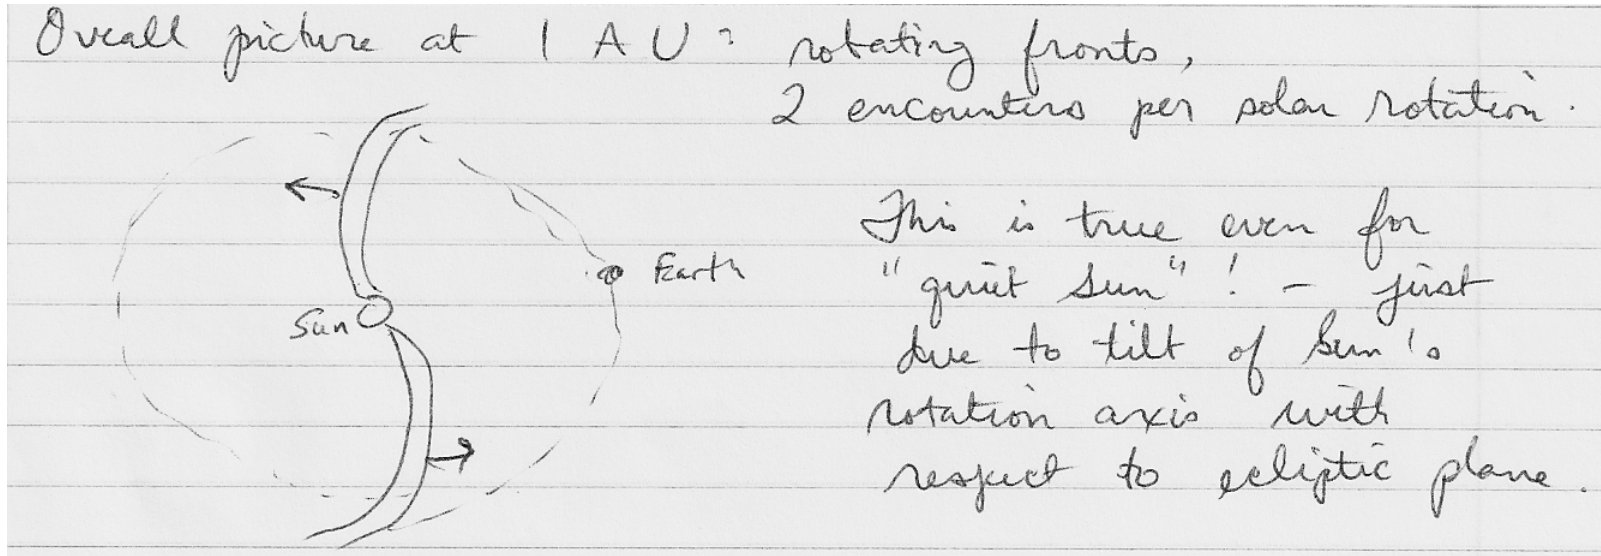 Overall picture at 1 AU: rotating fronts,
2 encounters per solar rotation.
This is true even for
"quiet Sun"! - just
Earth
due to tilt of Sun's
Sun
rotation axis with
respect to ecliptic plane.